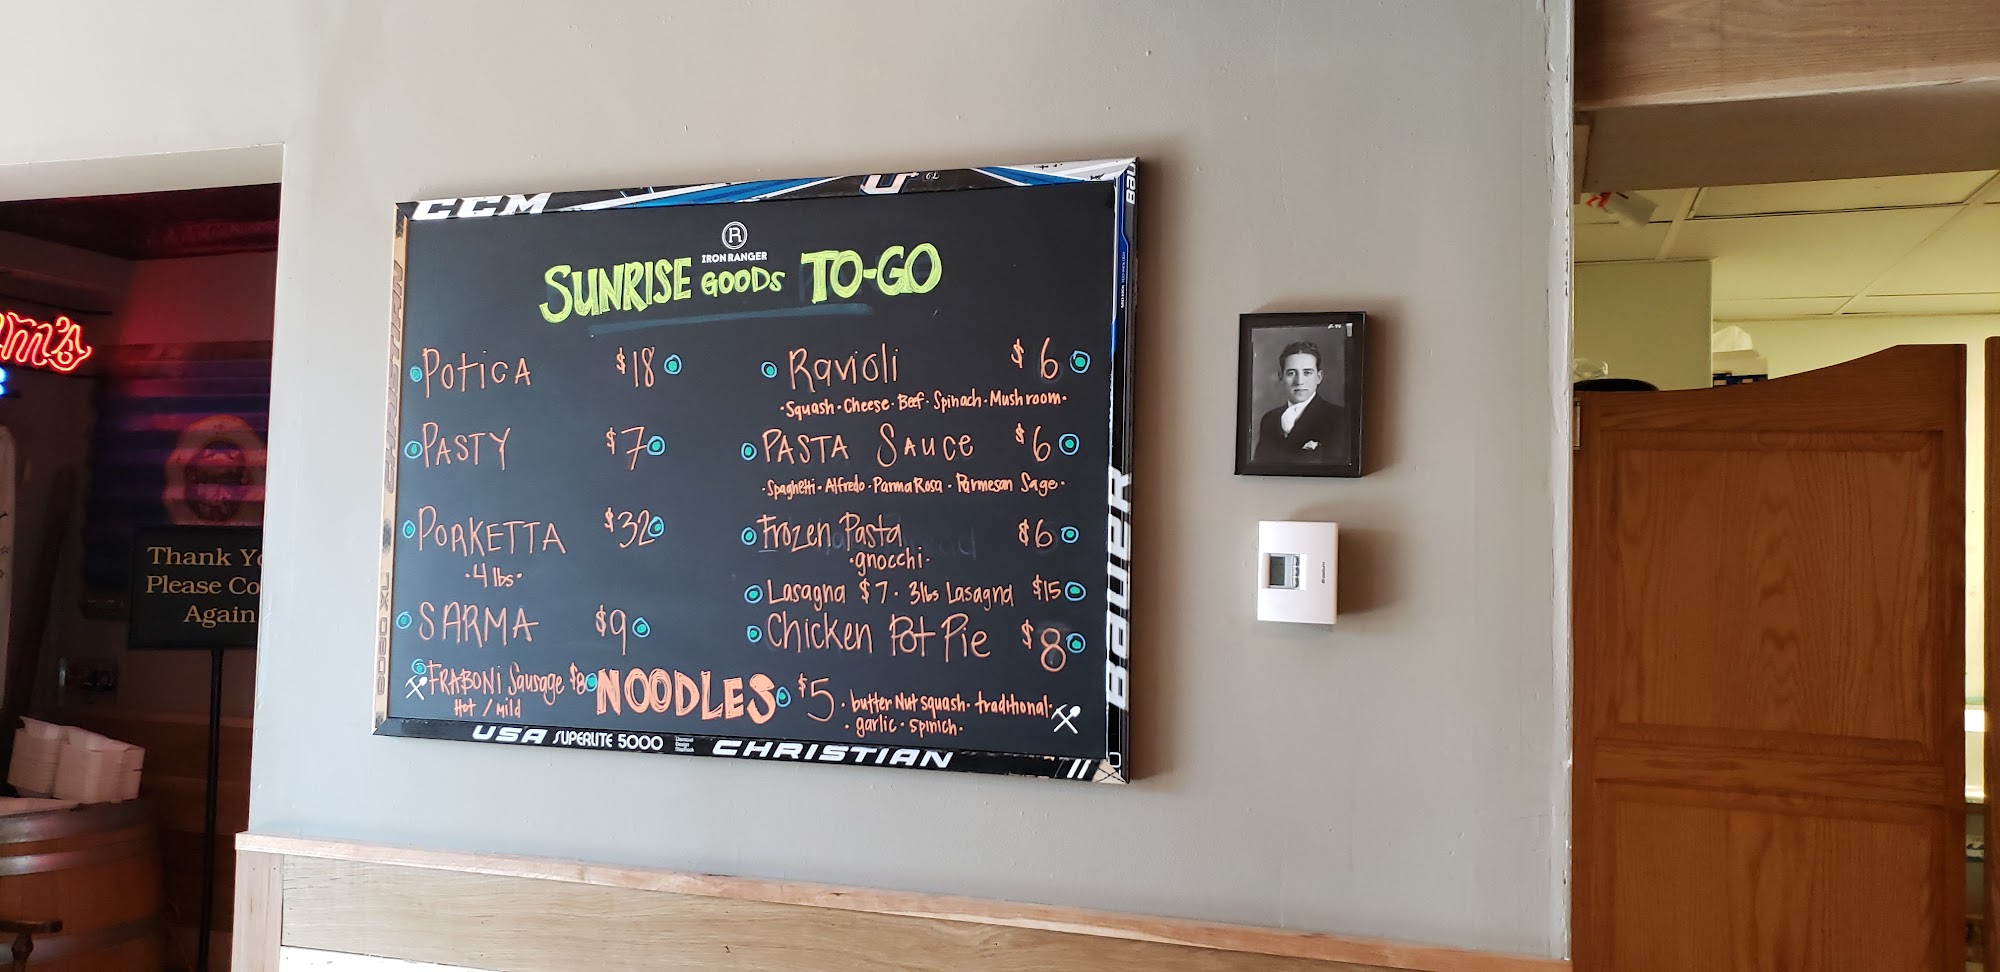 CCM
IRON RANGER
SUNRISE GOODS TO-GO
POTICA $18
PASTY $7
PORKETTA $32
·4 lbs·
SARMA $9
FRABONI Sausage $8
Hot / Mild
Ravioli $6
·Squash·Cheese·Beef·Spinach·Mushroom·
PASTA SAUCE $6
·Spaghetti·Alfredo·Parma Rosa·Parmesan Sage·
Frozen Pasta $6
·gnocchi·
Lasagna $7· 3lbs Lasagna $15
Chicken Pot Pie $8
NOODLES $5 ·butter Nut squash·traditional·
·garlic·Spinich·
USA SUPERLITE 5000 CHRISTIAN
BAUER
CHRISTIAN
5060 XL
m's
Thank Yo
Please Co
Again